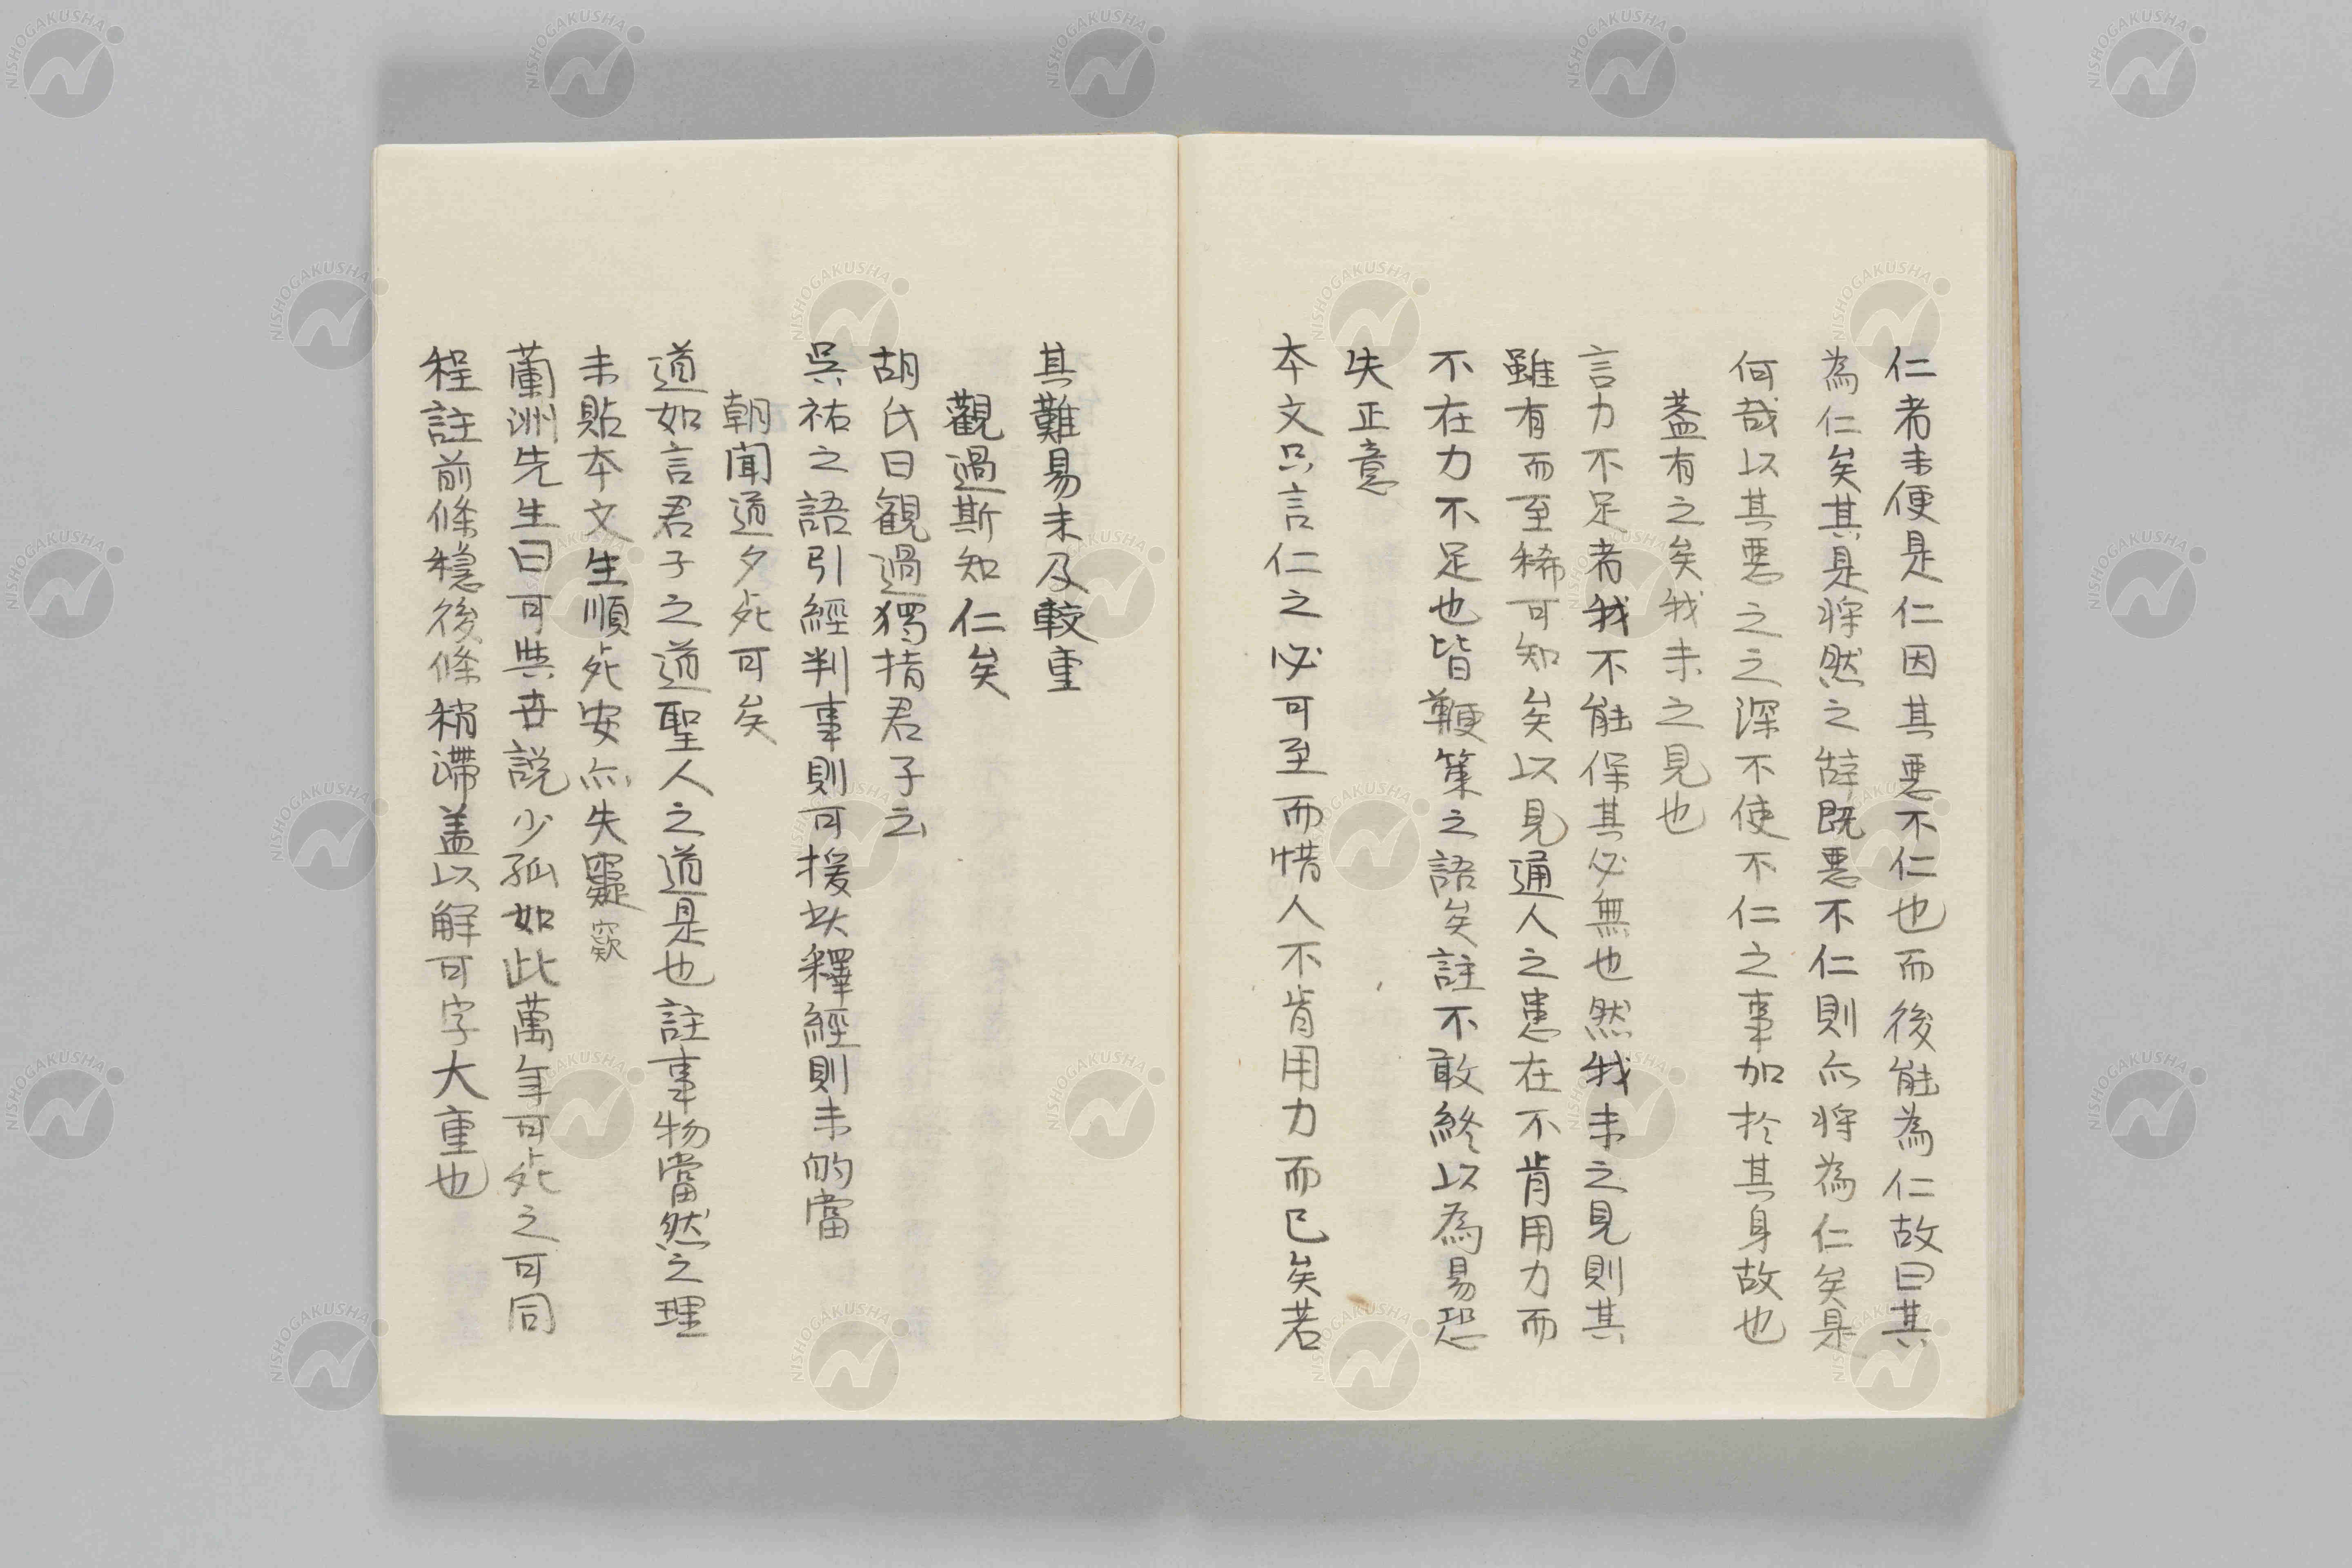 仁者未便是仁因其悪不仁也而後能為仁故曰其
為仁矣其是将然之辞既悪不仁則亦将為仁矣是
何哉以其悪之之深不使不仁之事加於其身故也
蓋有之矣我未之見也
言力不足者我不能保其必無也然我未之見則其
雖有而至稀可知矣以見通人之患在不肯用力而
不在力不足也皆鞭策之語矣註不敢終以為易恐
失正意
本文只言仁之必可至而惜人不肯用力而已矣若
其難易未及較重
觀過斯知仁矣
胡氏曰観過獨指君子云
呉祐之語引經判事則可援以釋經則未的當
朝聞道夕死可矣
道如言君子之道聖人之道是也註事物當然之理
未貼本文生順死安亦失竅
蘭洲先生曰可與毋説少孤如此萬年可死之可同
程註前條穏後條稍滞蓋以解可字大重也
NISHOGAKUSHA